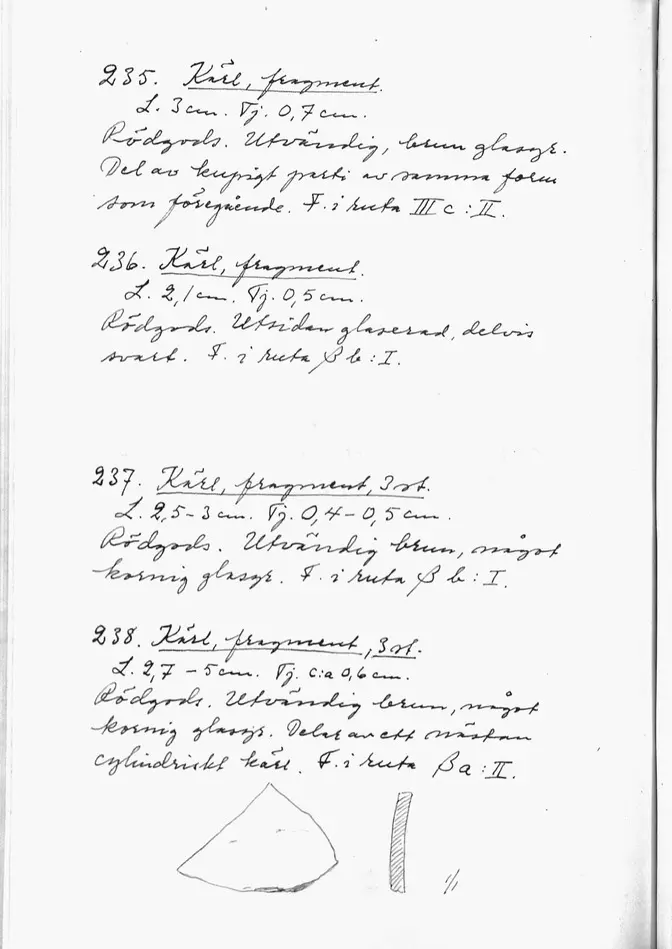 235. Kärl, fragment.
L. 3 cm. Tj. 0,7 cm.
Rödgods. Utvändig, brun glasyr.
Del av kupigt parti av samma form
som föregående. F. i ruta III c : II.
236. Kärl, fragment.
L. 2,1 cm. Tj. 0,5 cm.
Rödgods. Utsidan glaserad, delvis
svart. F. i ruta β b : I.
237. Kärl, fragment, 3 st.
L. 2,5 - 3 cm. Tj. 0,4 - 0,5 cm.
Rödgods. Utvändig brun, något
kornig glasyr. F. i ruta β b : I.
238. Kärl, fragment, 3 st.
L. 2,7 - 5 cm. Tj. c:a 0,6 cm.
Rödgods. Utvändig brun, något
kornig glasyr. Delar av ett nästan
cylindriskt kärl. F. i ruta β a : II.
1/1